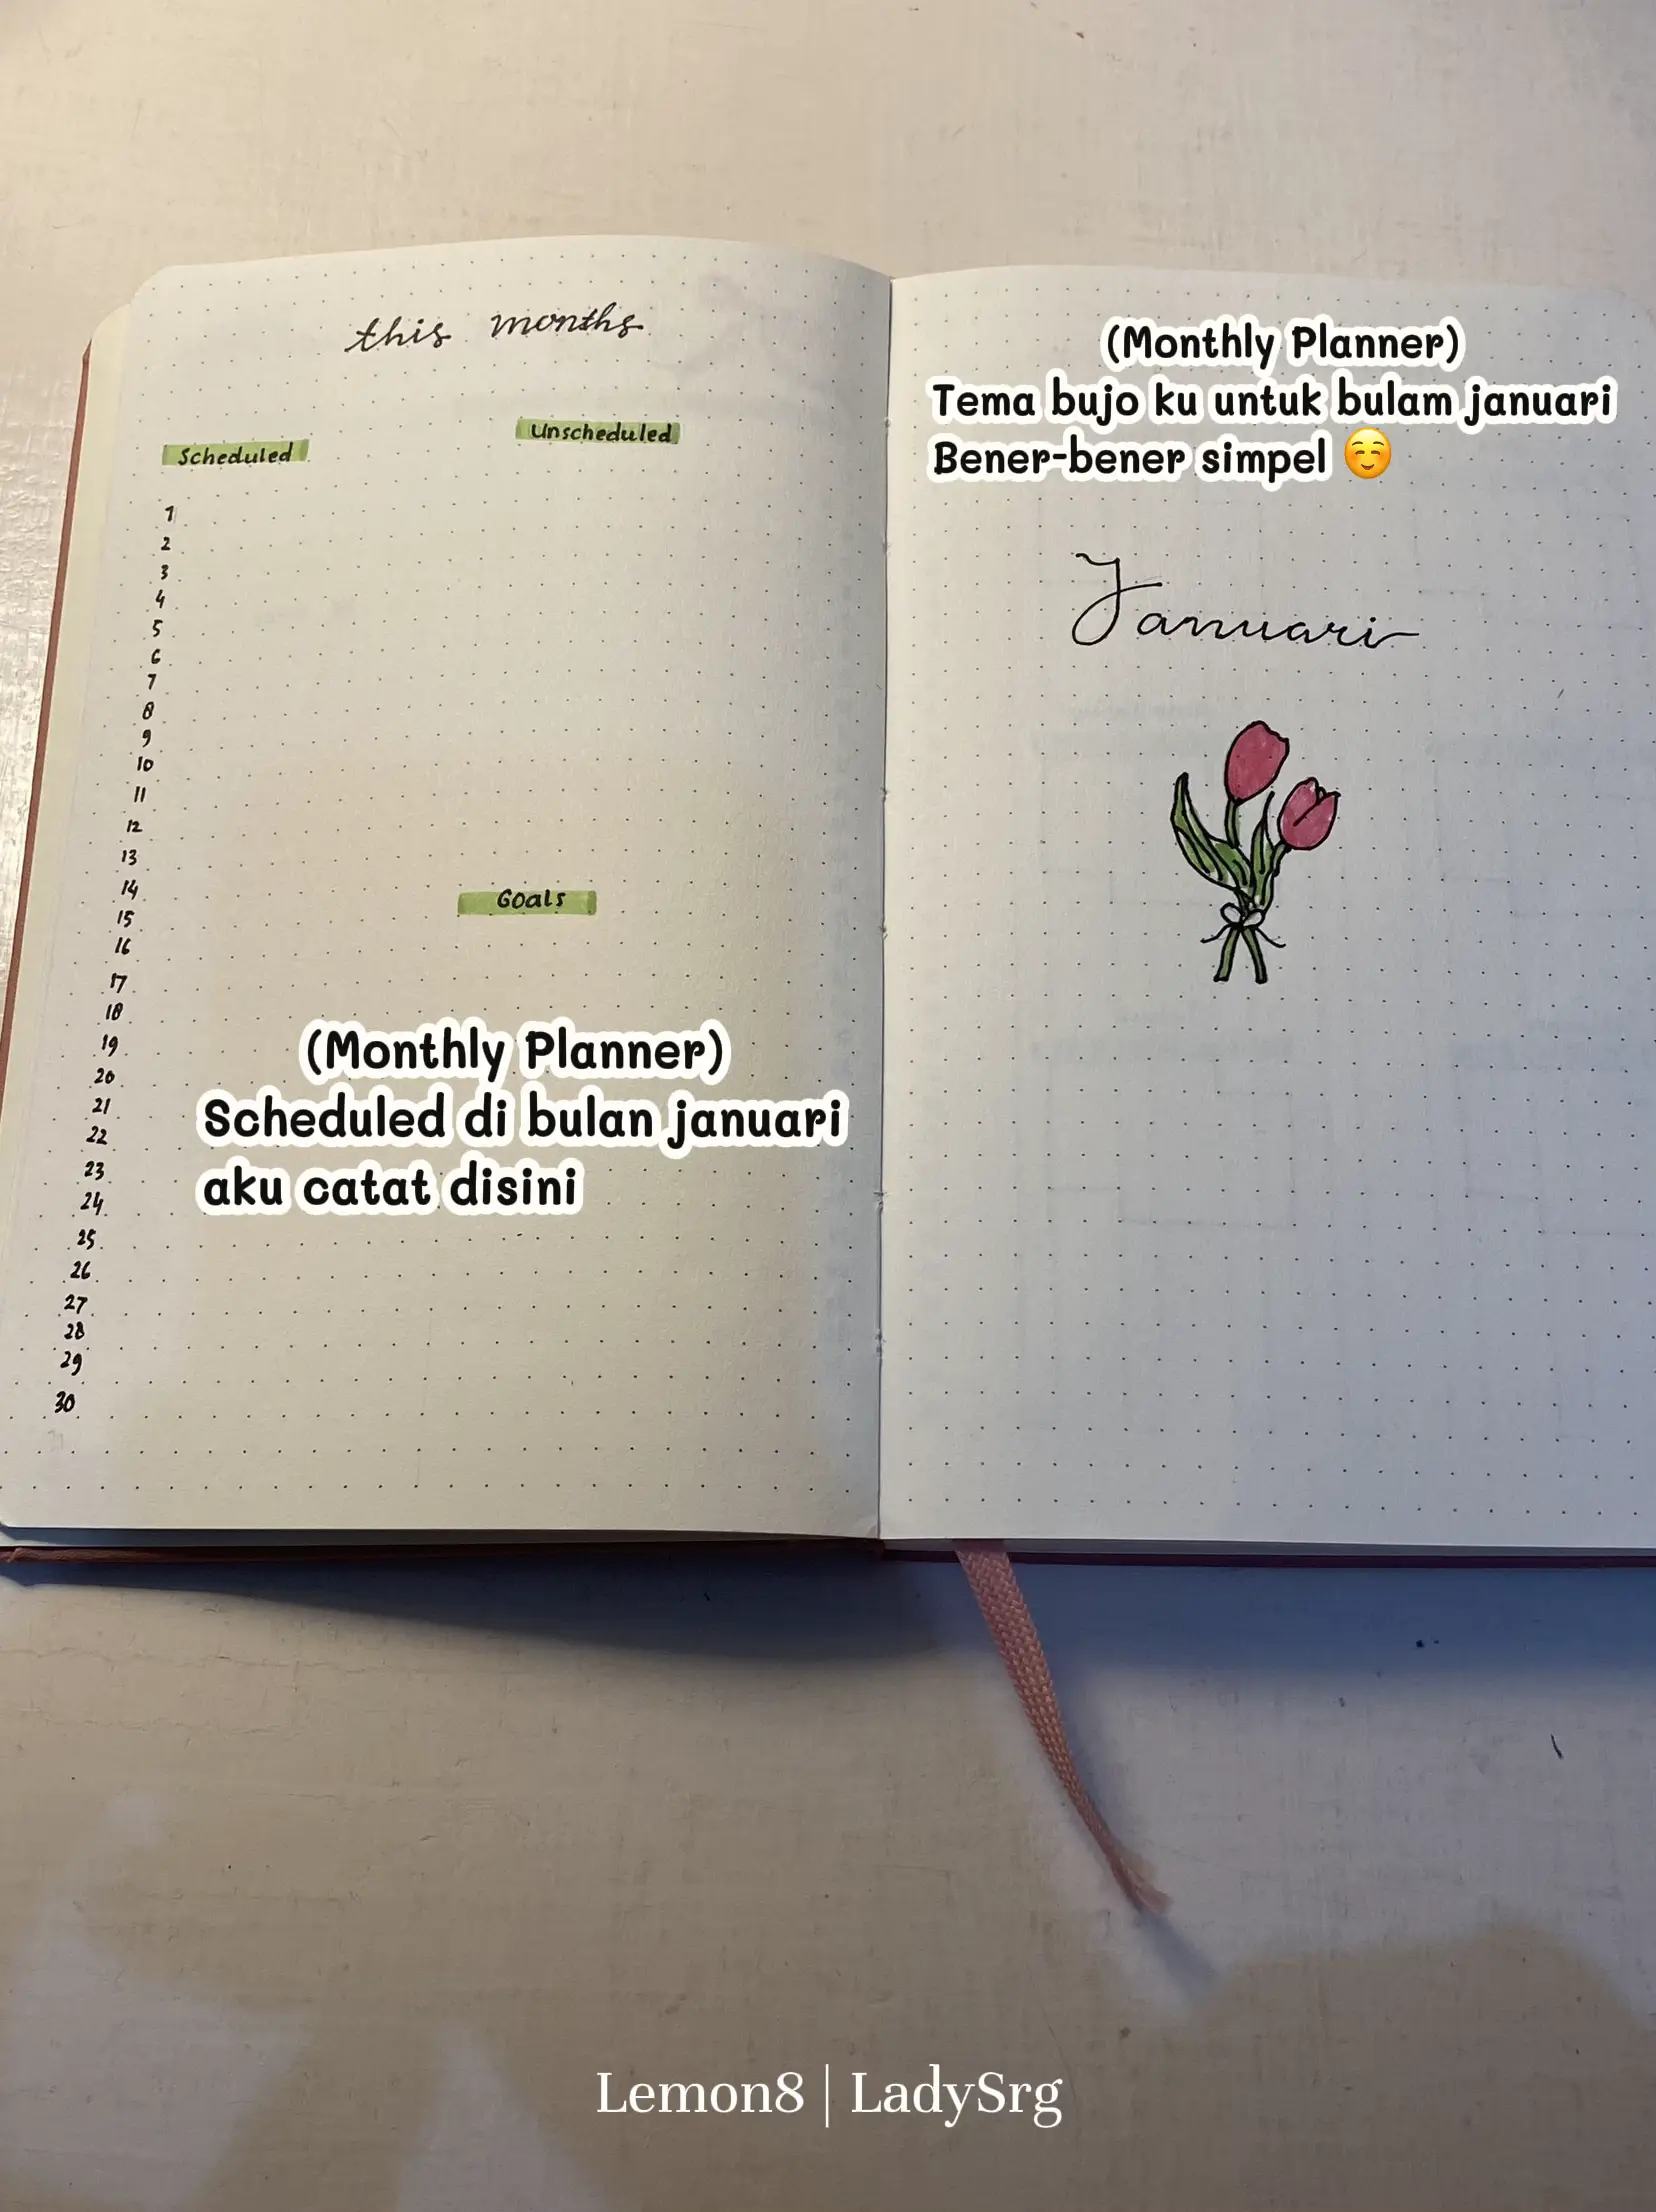 this months
Scheduled
Unscheduled
1
2
3
4
5
6
7
8
9
10
11
12
13
14
15
16
17
18
19
20
21
22
23
24
25
26
27
28
29
30
Goals
(Monthly Planner)
Scheduled di bulan januari
aku catat disini
(Monthly Planner)
Tema bujo ku untuk bulam januari
Bener-bener simpel ☺️
Januari
Lemon8 | LadySrg